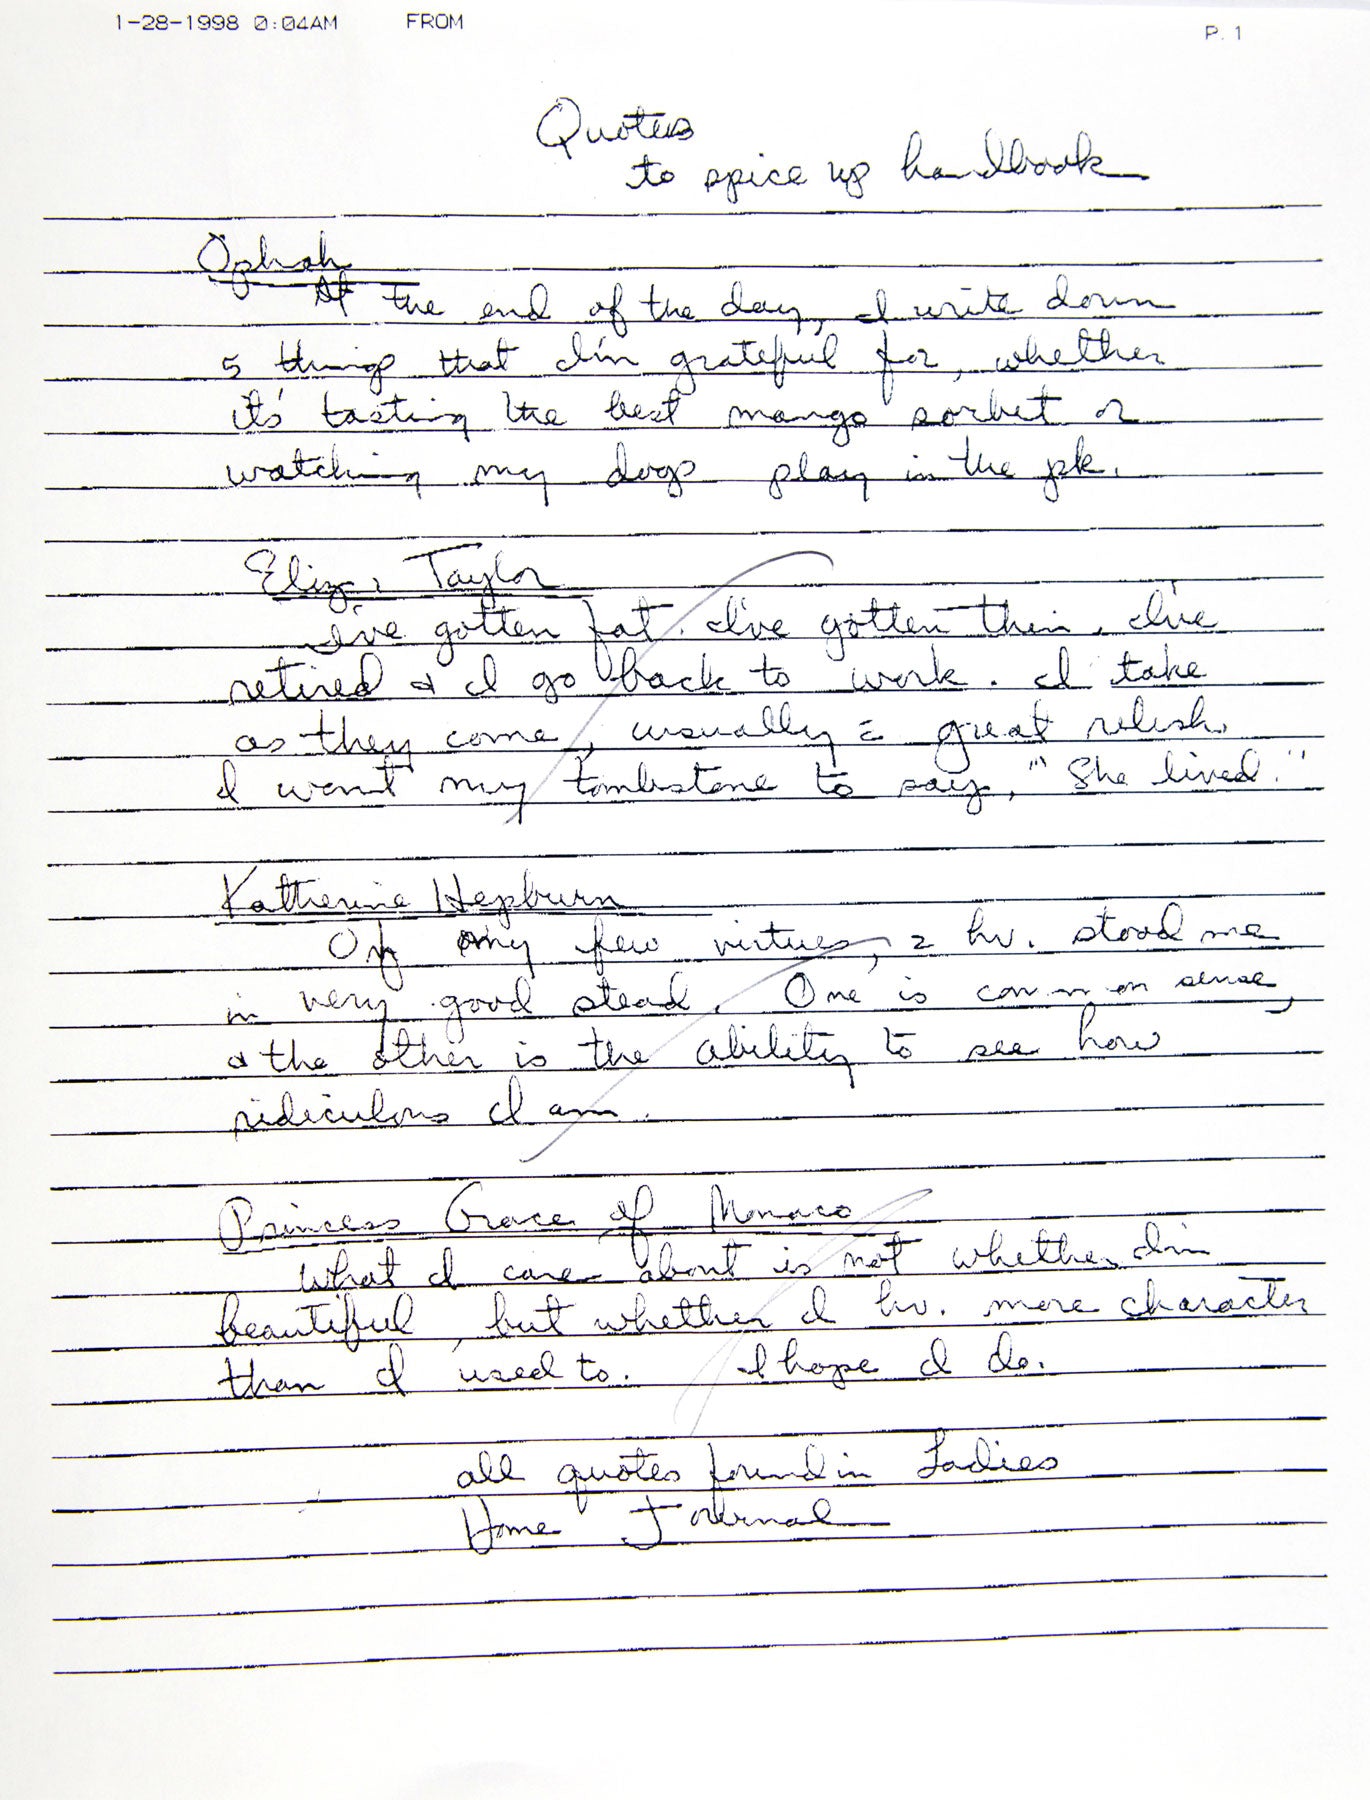 1-28-1998 0:04AM FROM P. 1
Quotes
to spice up handbook
Ophah
At the end of the day, I write down
5 things that I'm grateful for, whether
it's tasting the best mango sorbet or
watching my dogs play in the pk.
Eliza. Taylor
I've gotten fat. I've gotten thin. I've
retired & I go back to work. I take
as they come, usually c̄ great relish.
I want my tombstone to say, "She lived."
Katherine Hepburn
Of my few virtues, 2 hv. stood me
in very good stead. One is common sense,
& the other is the ability to see how
ridiculous I am.
Princess Grace of Monaco
What I care about is not whether I'm
beautiful, but whether I hv. more character
than I used to. I hope I do.
all quotes found in Ladies
Home Journal